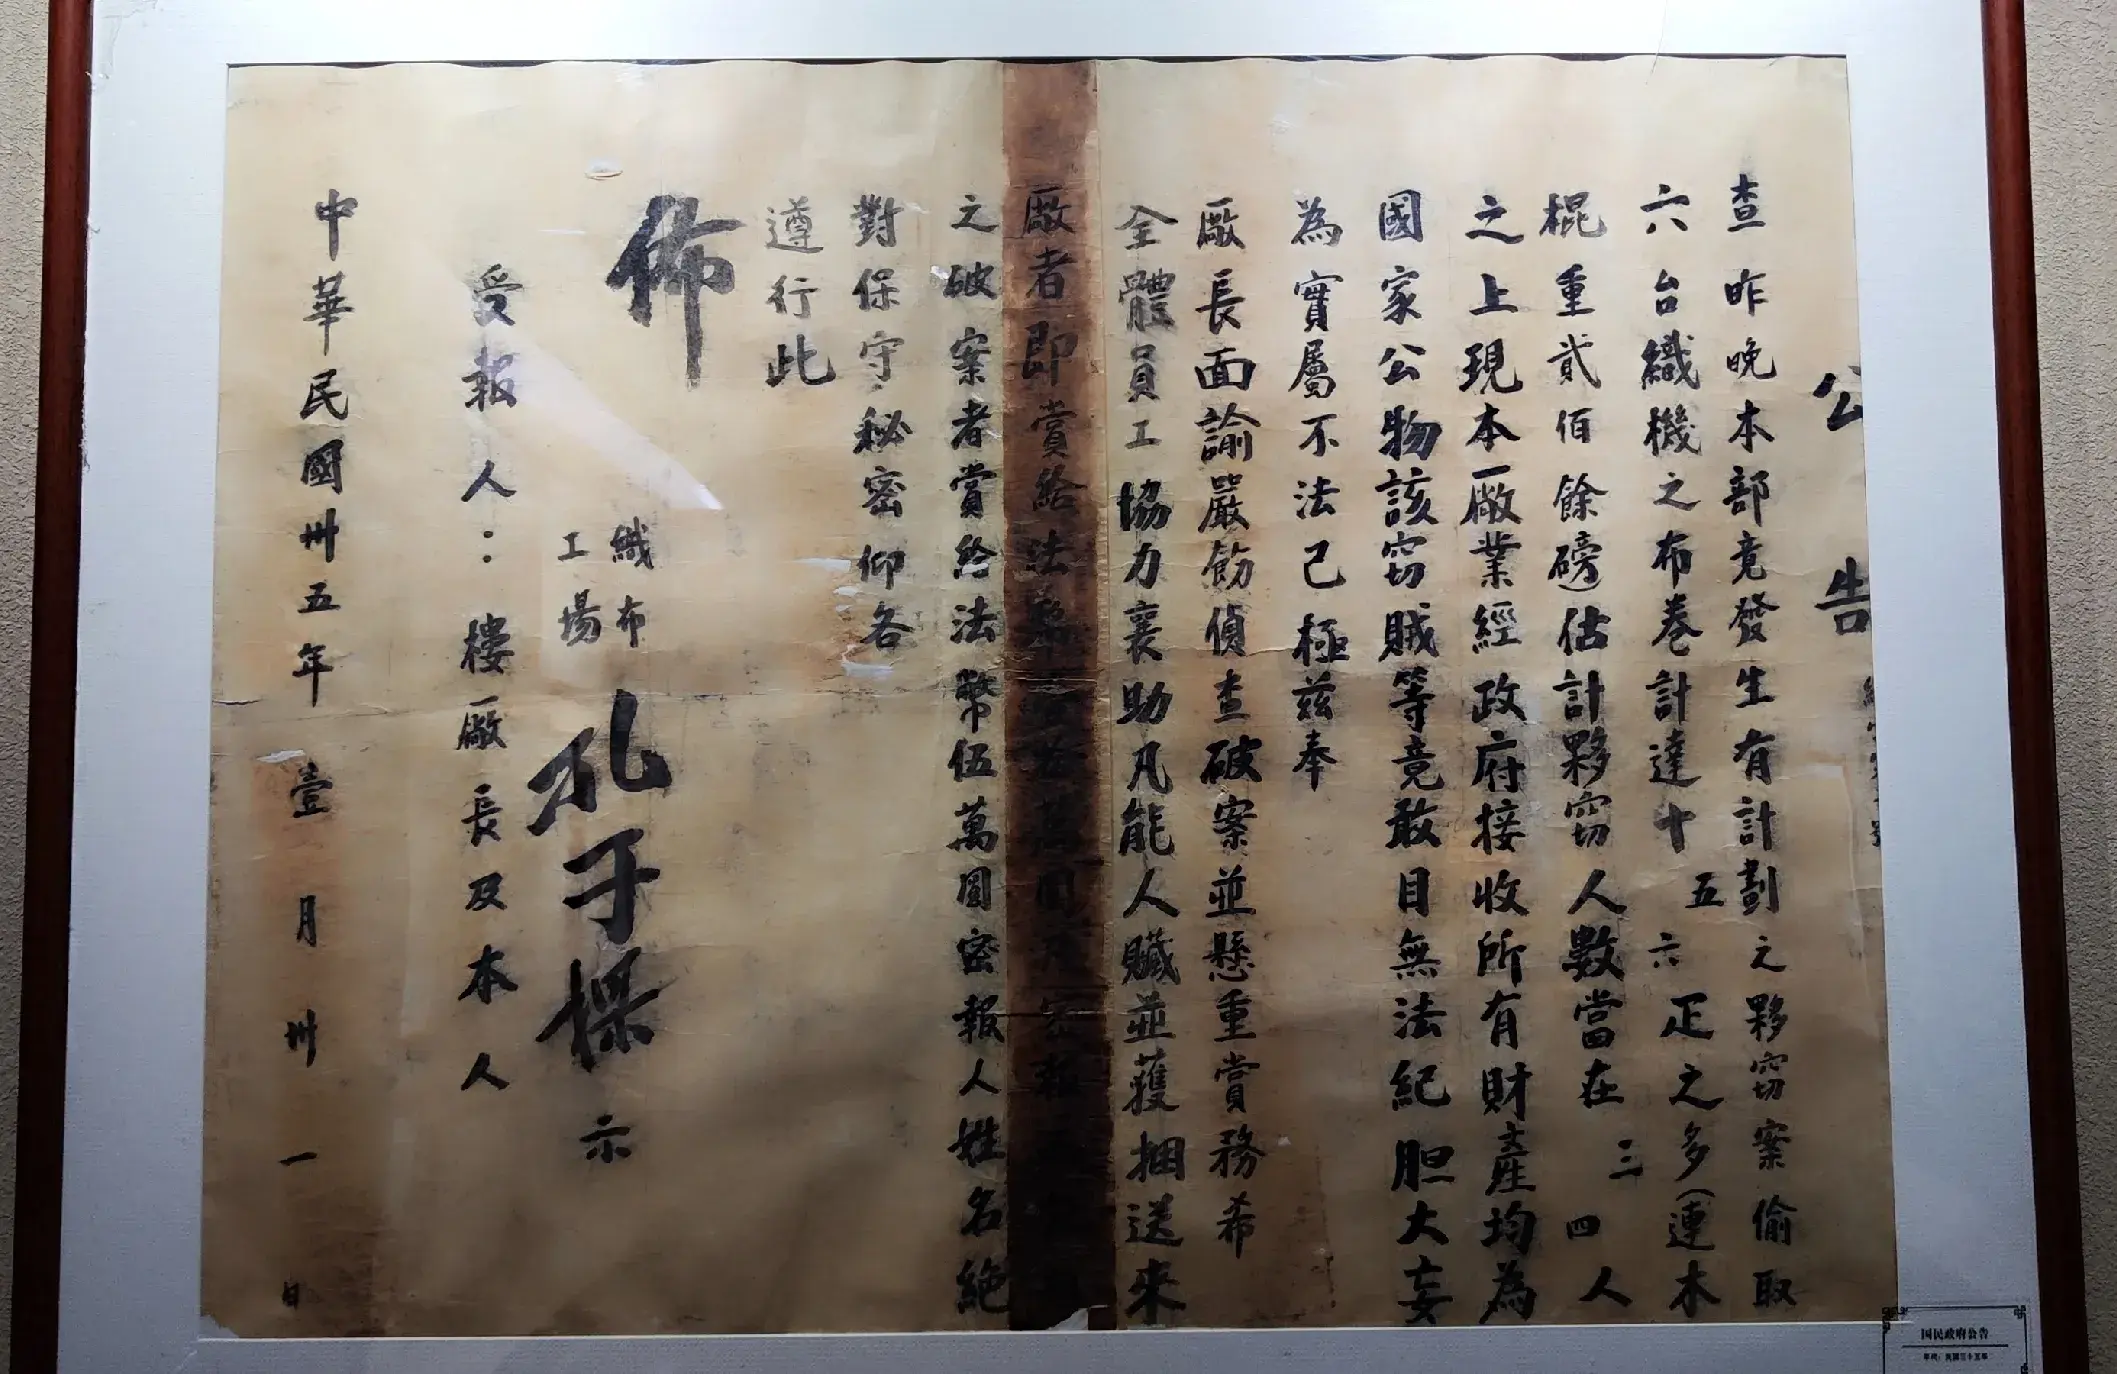 公告
查昨晚本部竟發生有計劃之夥窃案偷取
六台織機之布卷計達十五六疋之多(連木
棍重貳佰餘磅)估計夥窃人數當在三四人
之上現本廠業經政府接收所有財產均為
國家公物該窃賊等竟敢目無法紀胆大妄
為實屬不法已極茲奉
廠長面諭嚴飭偵查破案並懸重賞務希
全體員工協力襄助凡能人贓並獲捆送來
廠者即賞給法幣
之破案者賞給法幣伍萬圓密報人姓名絕
對保守秘密仰各
遵行此
佈
織布
工場
孔子探示
受報人：樓廠長及本人
中華民國卅五年壹月卅一日
国民政府公告
年代：民国三十五年